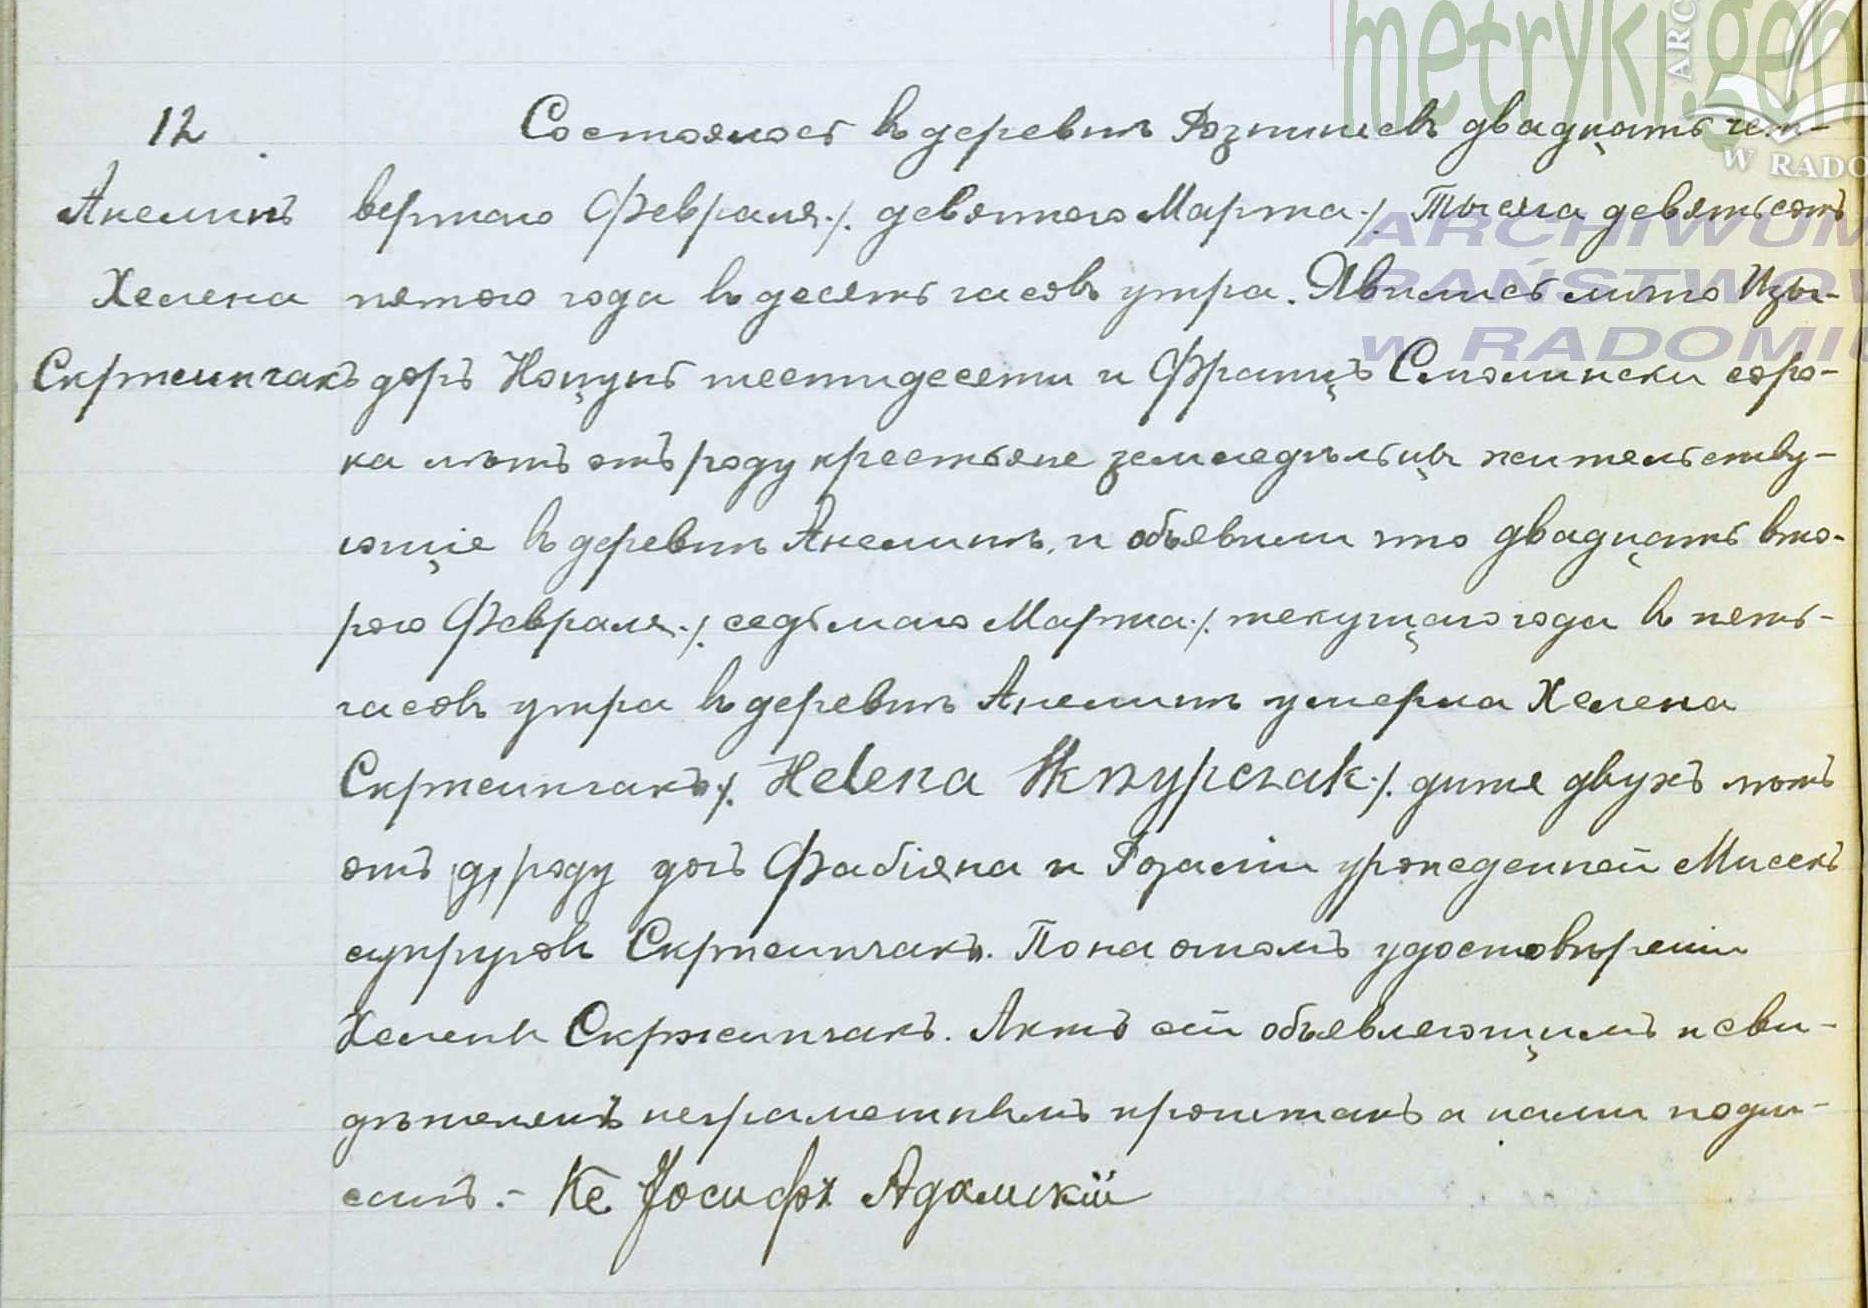 metryki.gen
ARC
W RADO
ARCHIWUM
PAŃSTWOW
W RADOMIU
12
Анелинъ
Хелена
Скржипчакъ
Состоялось въ деревнѣ двадцать чет-
вертаго Февраля ./. девятаго Марта ./. Тысяча девятьсотъ
пятого года въ десять часовъ утра. Явились лично Изы-
доръ Коцунь шестидесяти и Францъ Смолински соро-
ка лѣтъ отъ роду крестьяне земледѣльцы жительству-
ющіе въ деревнѣ Анелинѣ, и объявили что двадцать вто-
рого Февраля ./. седьмаго Марта ./. текущаго года въ пять-
часовъ утра въ деревнѣ Анелинѣ умерла Хелена
Скржипчакъ ./. Helena ./. дитя двухъ лѣтъ
отъ роду дочь Фабіяна и Розаліи урожденной Мисекъ
супруговъ Скржипчакъ. По настомъ удостовѣреніи
Хелены Скржипчакъ. Актъ сей объявляющимъ и сви-
дѣтелямъ неграмотнымъ прочитанъ а нами подпи-
санъ. - Кс Іосифъ Адамскій